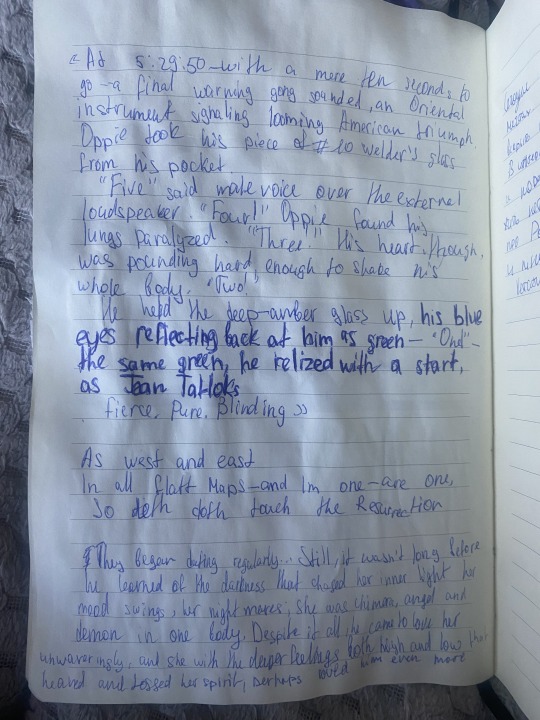 « At 5:29:50—with a mere ten seconds to
go—a final warning gong sounded, an Oriental
instrument signaling looming American triumph.
Oppie took his piece of #10 welder's glass
from his pocket
"Five" said male voice over the external
loudspeaker. "Four!" Oppie found his
lungs paralyzed. "Three." His heart, though,
was pounding hard enough to shake his
whole body. "Two!"
He held the deep-amber glass up, his blue
eyes reflecting back at him as green— "One"—
the same green, he relized with a start,
as Jean Tatloks
fierce. Pure. Blinding »
As west and east
In all flatt Maps—and Im one—are one,
So deth doth touch the Resurrection
They began dating regularly... Still, it wasn't long before
he learned of the darkness that chased her inner light her
mood swings, her night mares; she was chimera, angel and
demon in one body. Despite it all, he came to love her
unwaveringly, and she with the deeper feelings both high and low that
heaved and tossed her spirit, perhaps loved him even more